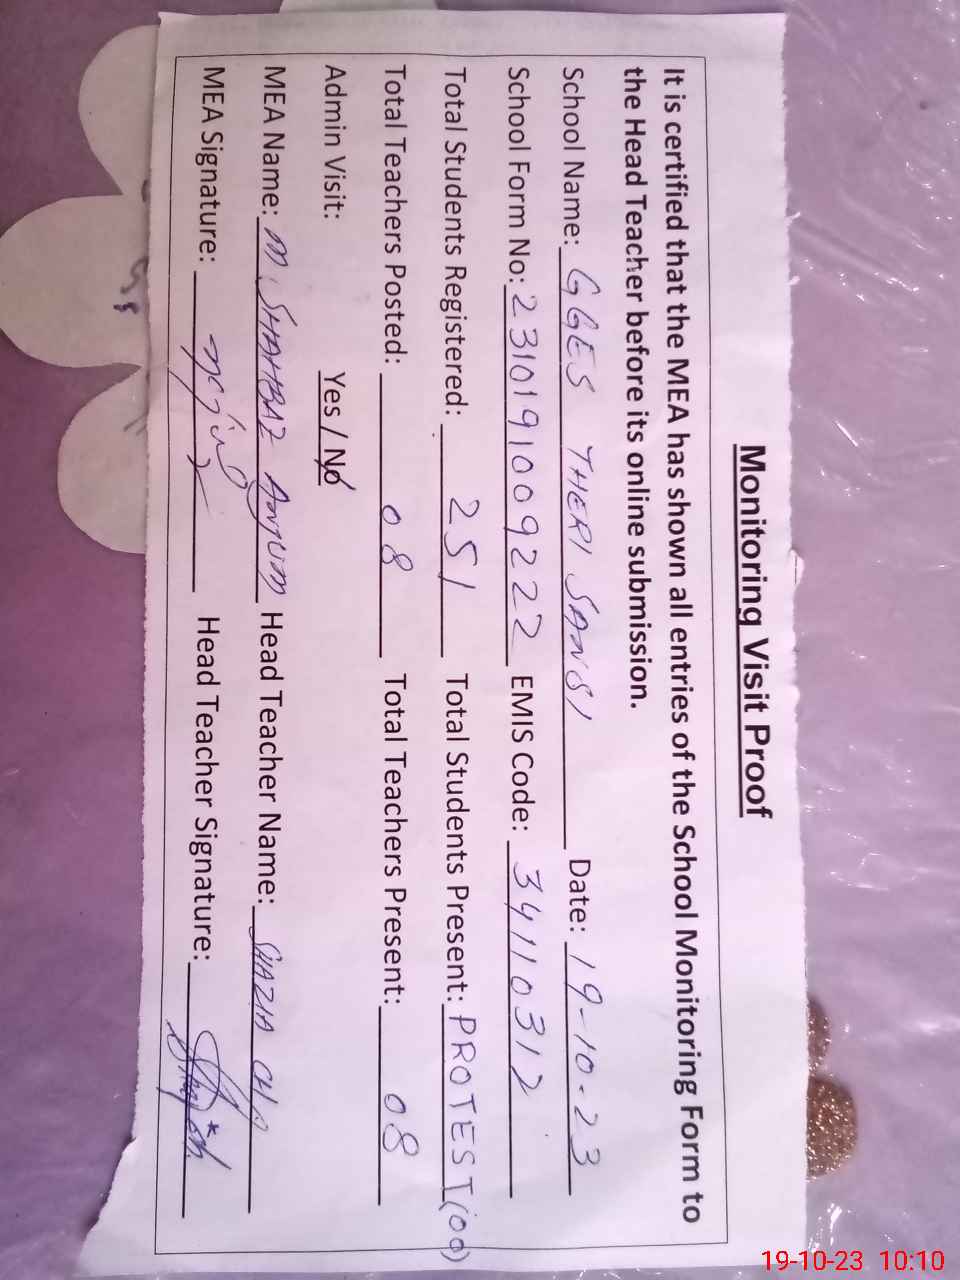 Monitoring Visit Proof
It is certified that the MEA has shown all entries of the School Monitoring Form to
the Head Teacher before its online submission.
School Name: GGES THERI SANSI Date: 19-10-23
School Form No: 2310191009222 EMIS Code: 34110312
Total Students Registered: 251 Total Students Present: PROTEST(00)
Total Teachers Posted: 08 Total Teachers Present: 08
Admin Visit: Yes / No
MEA Name: M. SHAHBAZ Anjum Head Teacher Name: SHAZIA CH
MEA Signature: Head Teacher Signature:
19-10-23 10:10